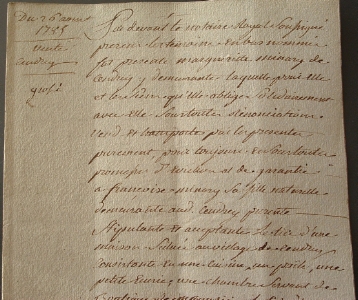 Du 26 aoust
1785
vente
Coudrey
grosé
Par devant le notaire Royal Soussigné
presents les temoins en bas nommés
fut presente marguerite minary de
Coudrey y demeurante laquelle pour elle
et les siens qu'elle oblige Solidairement
avec elle Sous toutes Renonciations
vend et transporte par les presentes
purement, pour toujours et Sous toutes
promesses d'Eviction et de garantie
a francoise minary Sa fille naturelle
demeurante aud. Coudrey presente
Stipulante et acceptante d'une
maison Située au village de Coudrey
Consistante en une Cuisine, un poële, une
petite une chambre Servant de